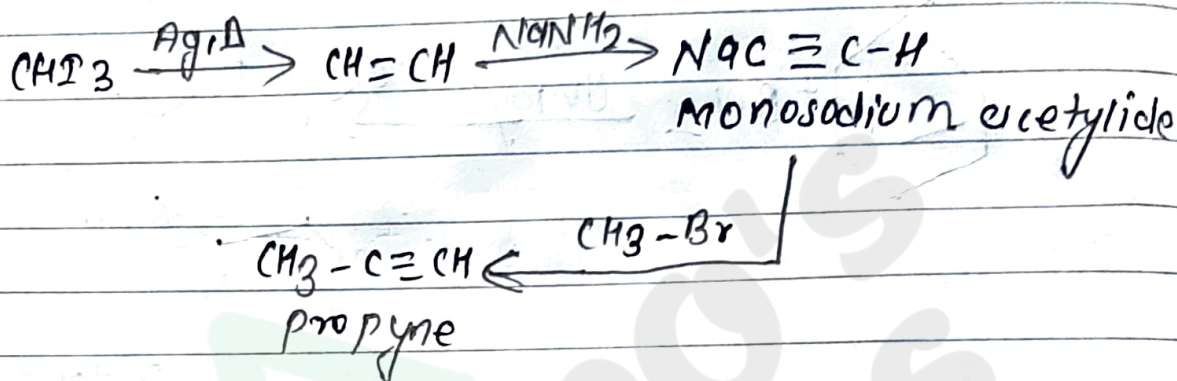 CHI3 —Ag,Δ→ CH=CH —NaNH2→ NaC≡C-H
Monosodium acetylide
CH3-Br
CH3-C≡CH
propyne